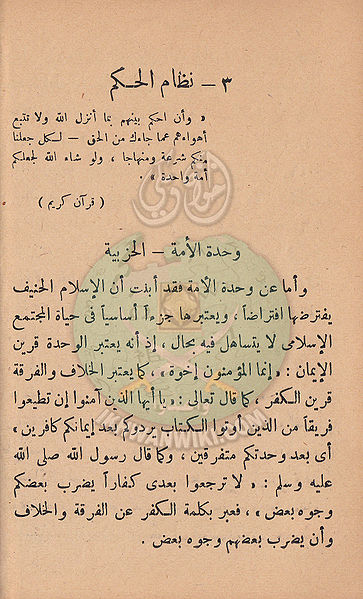 ٣ – نظام الحـكم
« وأن احكم بينهم بما أنزل الله ولا تتبع
أهواءهم عما جاءك من الحق – لـكل جعلنا
منكم شرعة ومنهاجا ، ولو شاء الله لجعلكم
أمة واحدة » .
( قرآن كريم )
وحدة الأمة – الحزبية
وأما عن وحدة الأمة فقد أبنت أن الإسلام الحنيف
يفترضها افتراضاً ، ويعتبرها جزءاً أساسياً فى حياة المجتمع
الإسلامى لا يتساهل فيه بحال ، إذ أنه يعتبر الوحدة قرين
الإيمان : « إنما المؤمنون إخوة » ، كما يعتبر الخلاف والفرقة
قرين الـكفر ، كما قال تعالى : « يا أيها الذين آمنوا إن تطيعوا
فريقاً من الذين أوتوا الـكتاب يردوكم بعد إيمانكم كافرين »
أى بعد وحدتكم متفرقين ، وكما قال رسول الله صلى الله
عليه وسلم : « لا ترجعوا بعدى كفاراً يضرب بعضكم
وجوه بعض » ، فعبر بكلمة الـكفر عن الفرقة والخلاف
وأن يضرب بعضهم وجوه بعض .
IKHWANWIKI.COM